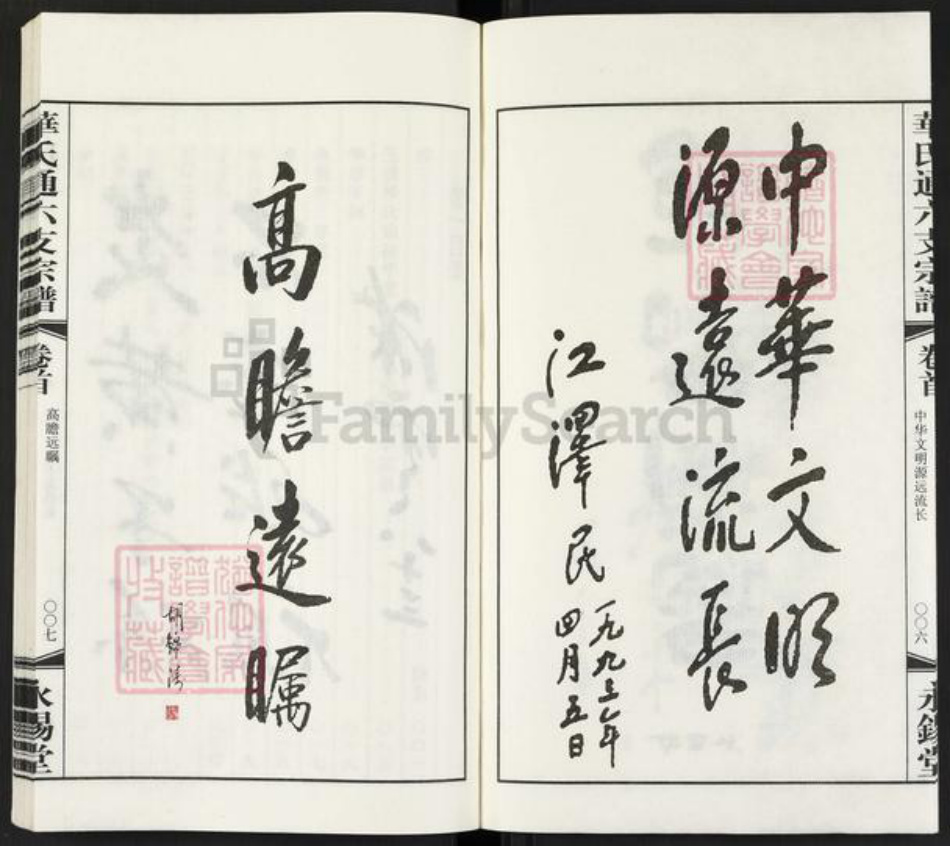 華氏通六支宗譜
卷首
中华文明源远流长
〇〇六
永錫堂
中華文明
源遠流長
江澤民
一九九三年
四月五日
高瞻遠矚
華氏通六支宗譜
卷首
高瞻远瞩
〇〇七
永錫堂
FamilySearch